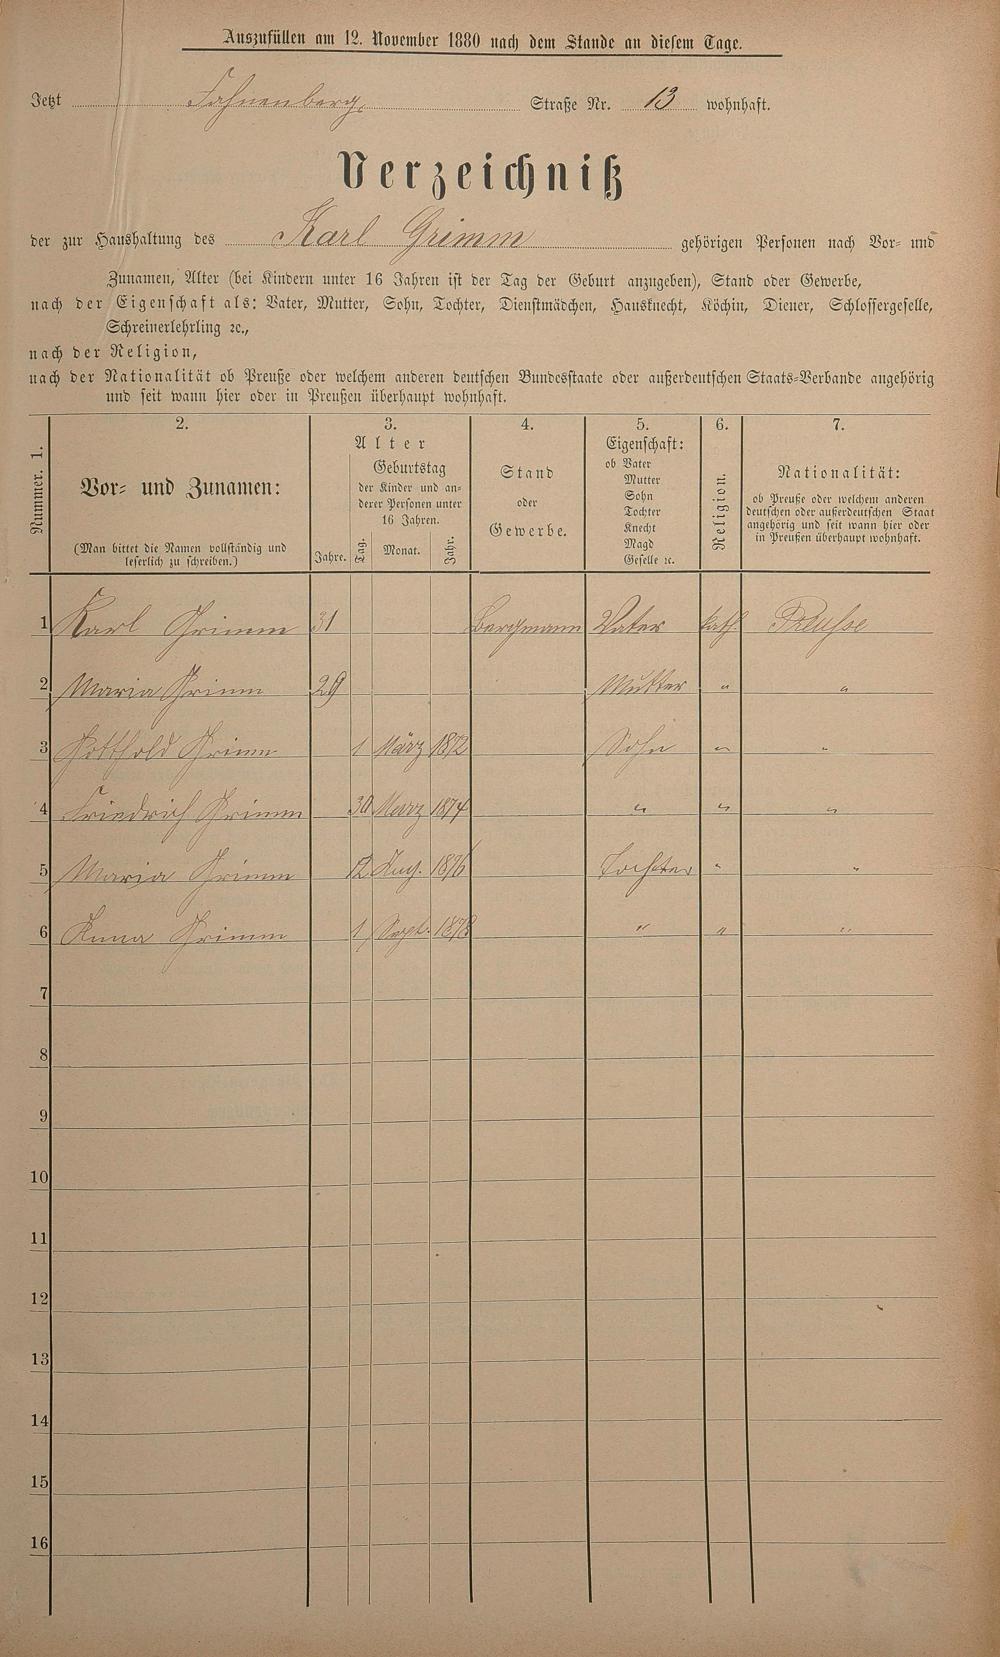 Auszufüllen am 12. November 1880 nach dem Stande an diesem Tage.
Jetzt Fahnenberg Straße Nr. 13 wohnhaft.
Verzeichniß
der zur Haushaltung des Karl Grimm gehörigen Personen nach Vor- und
Zunamen, Alter (bei Kindern unter 16 Jahren ist der Tag der Geburt anzugeben), Stand oder Gewerbe,
nach der Eigenschaft als: Vater, Mutter, Sohn, Tochter, Dienstmädchen, Hausknecht, Köchin, Diener, Schlossergeselle,
Schreinerlehrling ꝛc.,
nach der Religion,
nach der Nationalität ob Preuße oder welchem anderen deutschen Bundesstaate oder außerdeutschen Staats-Verbande angehörig
und seit wann hier oder in Preußen überhaupt wohnhaft.
Nummer. 1.
2.
Vor- und Zunamen:
(Man bittet die Namen vollständig und
leserlich zu schreiben.)
3.
Alter
Jahre.
Geburtstag
der Kinder und an-
derer Personen unter
16 Jahren.
Tag. Monat. Jahr.
4.
Stand
oder
Gewerbe.
5.
Eigenschaft:
ob Vater
Mutter
Sohn
Tochter
Knecht
Magd
Geselle ꝛc.
6.
Religion.
7.
Nationalität:
ob Preuße oder welchem anderen
deutschen oder außerdeutschen Staat
angehörig und seit wann hier oder
in Preußen überhaupt wohnhaft.
1 Karl Grimm 31 Bergmann Vater kath. Preusse
2 Maria Grimm 29 Mutter " "
3 Gotthold Grimm 1 März 1872 Sohn " "
4 Friedrich Grimm 30 März 1874 " " "
5 Maria Grimm 12 Aug. 1876 Tochter " "
6 Anna Grimm 1 Sept. 1878 " " "
7
8
9
10
11
12
13
14
15
16